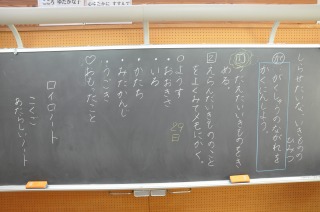 しらせたいな、いきものの
ひみつ
がくしゅうのながれを
かくにんしよう。
つたえたいいきものをき
める。
えらんだいきもののこと
をよくみてメモにかく。
ようす
・おおきさ
・いろ
・かたち
・みたかんじ
・うごき
♡おもったこと
29日
ロイロノート
こくご
あたらしいノート